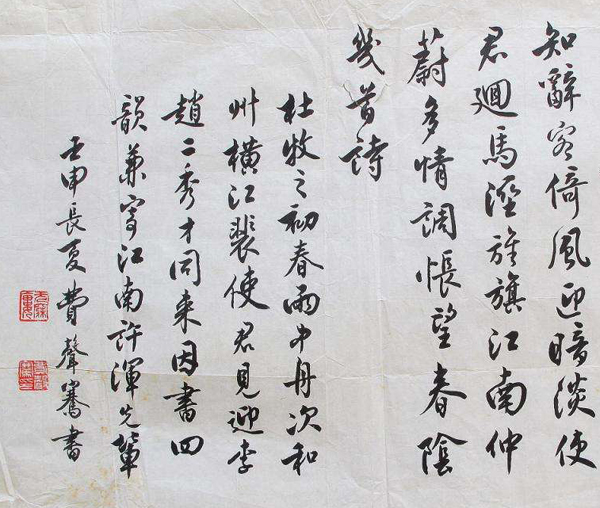 知辭客倚風迎暗淡使
君迴馬溼旌旗江南仲
蔚多情調悵望春陰
幾首詩
杜牧之初春雨中舟次和
州橫江裴使君見迎李
趙二秀才同來因書四
韻兼寄江南許渾先輩
壬申長夏費聲騫書